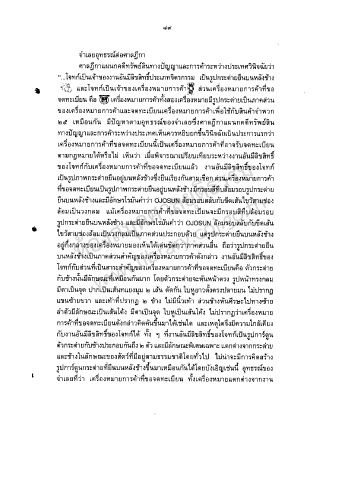 ๘๙
จำเลยอุทธรณ์ต่อศาลฎีกา
ศาลฎีกาแผนกคดีทรัพย์สินทางปัญญาและการค้าระหว่างประเทศวินิจฉัยว่า
"...โจทก์เป็นเจ้าของงานอันมีลิขสิทธิ์ประเภทจิตรกรรม เป็นรูปกระต่ายยืนบนหลังช้าง
และโจทก์เป็นเจ้าของเครื่องหมายการค้า ส่วนเครื่องหมายการค้าที่ขอ
จดทะเบียน คือ เครื่องหมายการค้าทั้งสองเครื่องหมายมีรูปกระต่ายเป็นภาคส่วน
ของเครื่องหมายการค้าและจดทะเบียนเครื่องหมายการค้าเพื่อใช้กับสินค้าจำพวก
๒๕ เหมือนกัน มีปัญหาตามอุทธรณ์ของจำเลยซึ่งศาลฎีกาแผนกคดีทรัพย์สิน
ทางปัญญาและการค้าระหว่างประเทศเห็นควรหยิบยกขึ้นวินิจฉัยเป็นประการแรกว่า
เครื่องหมายการค้าที่ขอจดทะเบียนนี้เป็นเครื่องหมายการค้าที่อาจรับจดทะเบียน
ตามกฎหมายได้หรือไม่ เห็นว่า เมื่อพิจารณาเปรียบเทียบระหว่างงานอันมีลิขสิทธิ์
ของโจทก์กับเครื่องหมายการค้าที่ขอจดทะเบียนแล้ว งานอันมีลิขสิทธิ์ของโจทก์
เป็นรูปภาพกระต่ายยืนอยู่บนหลังช้างซึ่งยืนเรียงกันสามเชือก ส่วนเครื่องหมายการค้า
ที่ขอจดทะเบียนเป็นรูปภาพกระต่ายยืนอยู่บนหลังช้าง มีกรอบสีทึบล้อมรอบรูปกระต่าย
ยืนบนหลังช้าง และมีอักษรโรมันคำว่า OJOSUN ล้อมรอบสลับกับขีดเส้นไขว้สามช่อง
ล้อมเป็นวงกลม แม้เครื่องหมายการค้าที่ขอจดทะเบียนจะมีกรอบสีทึบล้อมรอบ
รูปกระต่ายยืนบนหลังช้าง และมีอักษรโรมันคำว่า OJOSUN ล้อมรอบสลับกับขีดเส้น
ไขว้สามช่องล้อมเป็นวงกลมเป็นภาคส่วนประกอบด้วย แต่รูปกระต่ายยืนบนหลังช้าง
อยู่กึ่งกลางของเครื่องหมายมองเห็นได้เด่นชัดกว่าภาคส่วนอื่น ถือว่ารูปกระต่ายยืน
บนหลังช้างเป็นภาคส่วนสำคัญของเครื่องหมายการค้าดังกล่าว งานอันมีลิขสิทธิ์ของ
โจทก์กับส่วนที่เป็นสาระสำคัญของเครื่องหมายการค้าที่ขอจดทะเบียนคือ ตัวกระต่าย
กับช้างนั้นมีลักษณะที่เหมือนกันมาก โดยตัวกระต่ายจะหันหน้าตรง รูปหน้าทรงกลม
มีตาเป็นจุด ปากเป็นเส้นทแยงมุม ๒ เส้น ตัดกัน ใบหูยาวตั้งตรงปลายมน ไม่ปรากฏ
แขนซ้ายขวา และเท้าที่ปรากฏ ๒ ข้าง ไม่มีนิ้วเท้า ส่วนช้างหันศีรษะไปทางซ้าย
ลำตัวมีลักษณะเป็นเส้นโค้ง มีตาเป็นจุด ใบหูเป็นเส้นโค้ง ไม่ปรากฏว่าเครื่องหมาย
การค้าที่ขอจดทะเบียนดังกล่าวคิดค้นขึ้นมาได้เช่นใด และเหตุใดจึงมีความใกล้เคียง
กับงานอันมีลิขสิทธิ์ของโจทก์ได้ ทั้ง ๆ ที่งานอันมีลิขสิทธิ์ของโจทก์เป็นรูปการ์ตูน
ตัวกระต่ายกับช้างประกอบกันถึง ๒ ตัว และมีลักษณะพิเศษเฉพาะ แตกต่างจากกระต่าย
และช้างในลักษณะของสัตว์ที่มีอยู่ตามธรรมชาติโดยทั่วไป ไม่น่าจะมีการคิดสร้าง
รูปการ์ตูนกระต่ายที่ยืนบนหลังช้างขึ้นมาเหมือนกันได้โดยบังเอิญเช่นนี้ อุทธรณ์ของ
จำเลยที่ว่า เครื่องหมายการค้าที่ขอจดทะเบียน ทั้งเครื่องหมายแตกต่างจากงาน